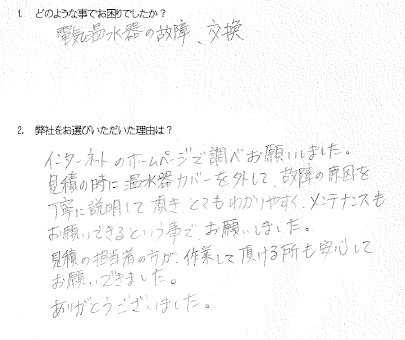 1. どのような事でお困りでしたか?
電気温水器の故障、交換
2. 弊社をお選びいただいた理由は?
インターネットのホームページで調べお願いしました。
見積の時に温水器カバーを外して、故障の原因を
丁寧に説明して頂き、とてもわかりやすく、メンテナンスも
お願いできるという事でお願いしました。
見積の担当者の方が、作業して頂ける所も安心して
お願いできました。
ありがとうございました。